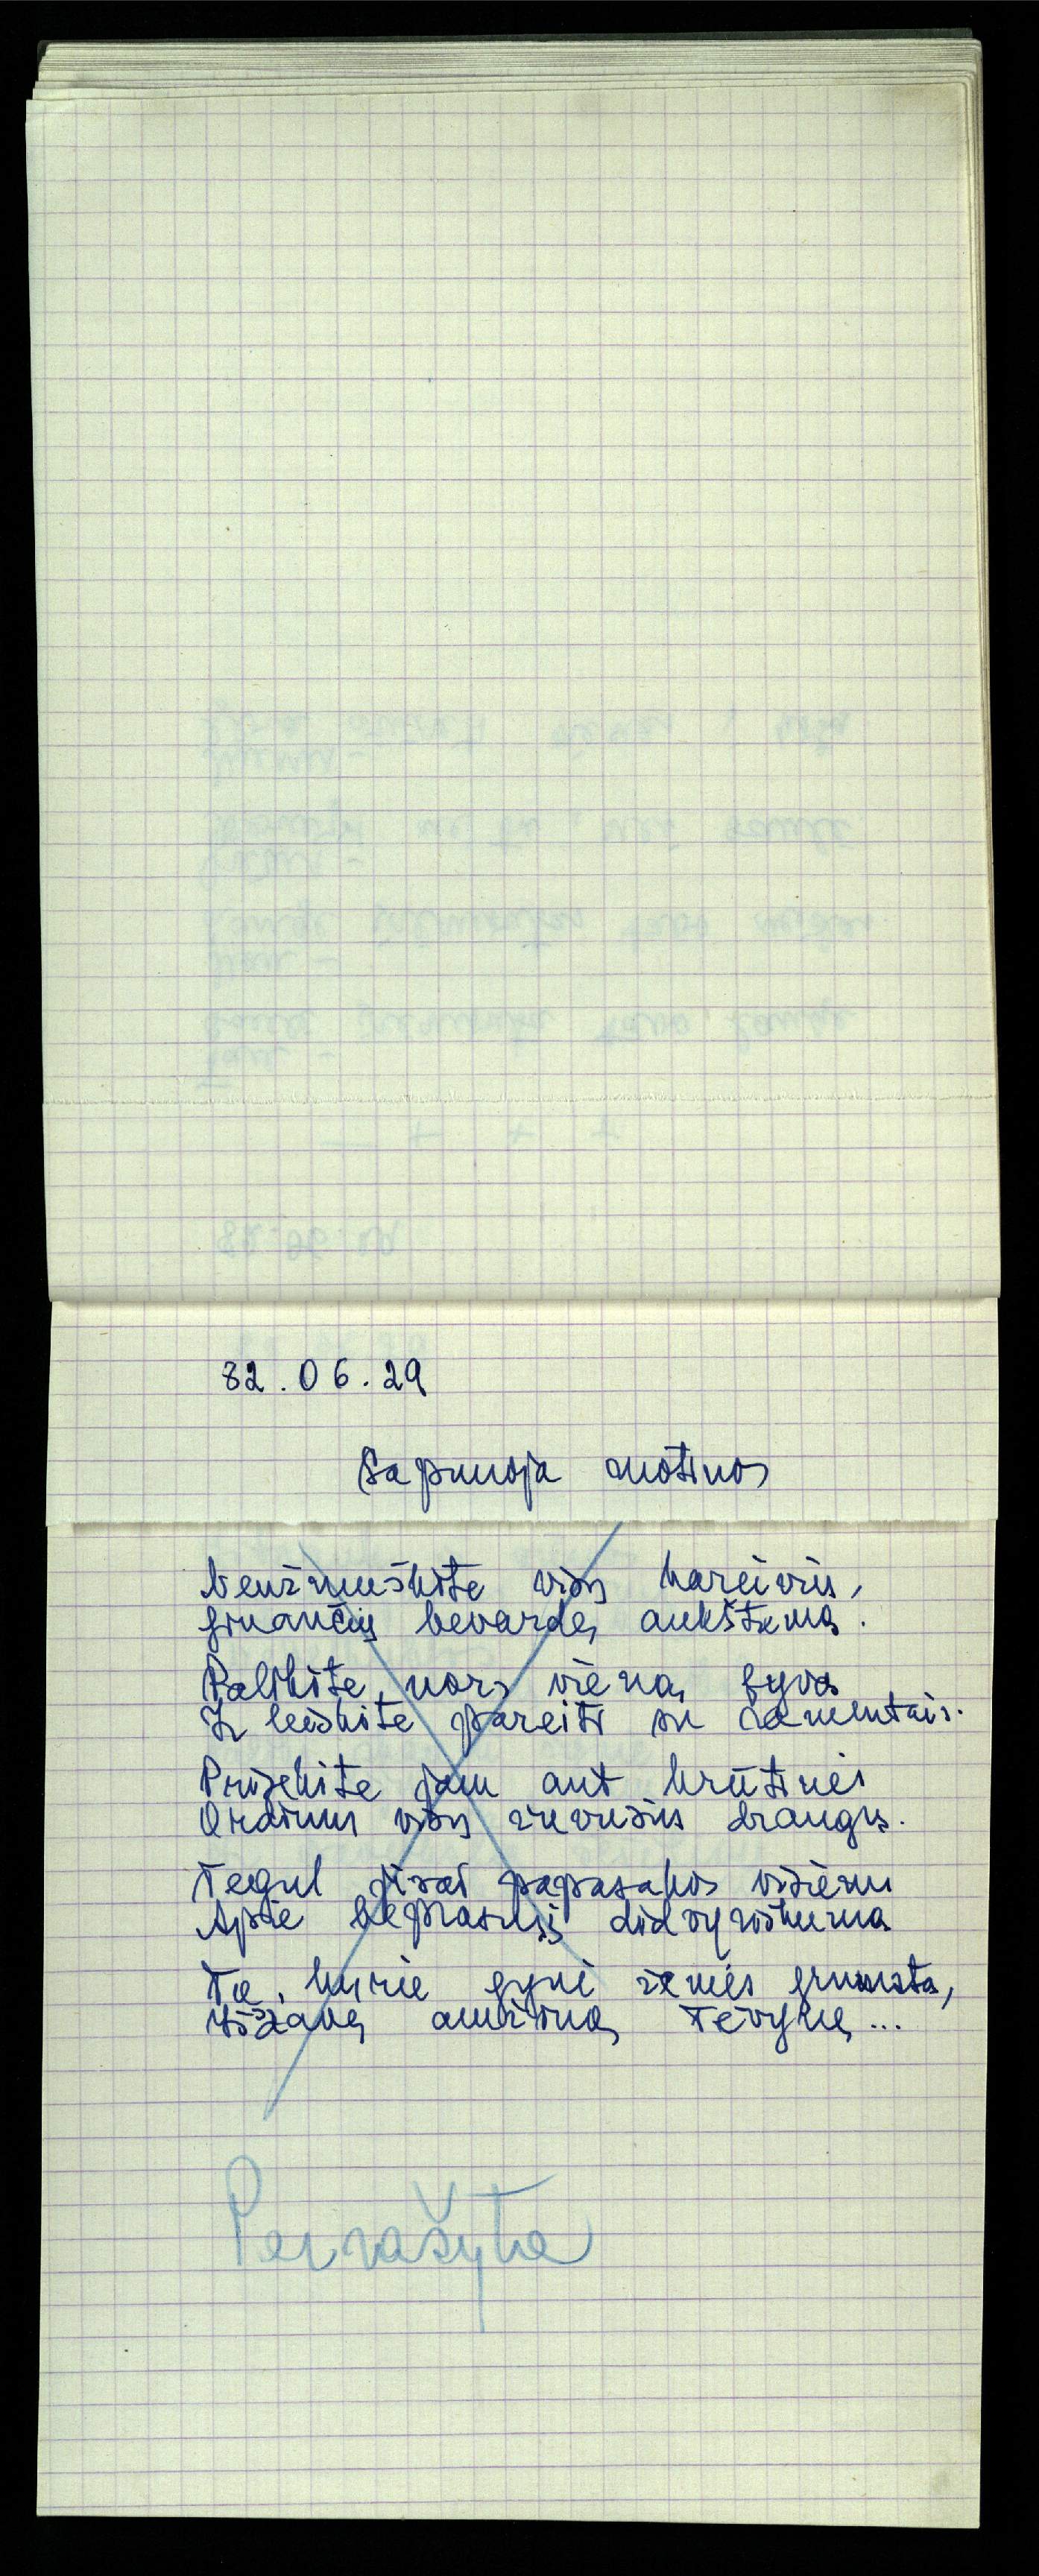 82.06.29
Sapnuoja motinos
Neužmuškite visų kareivių,
ginančių bevardę aukštumą.
Palikite nors vieną gyvą
Ir leiskite pareiti su ramentais.
Prisekite jam ant krūtinės
Ordinus visų žuvusių draugų.
Tegul jisai papasakos visiems
Apie beprasmį didvyriškumą
Tų, kurie gynė žemės grumstą,
amžiną Tėvynę...
Perrašyta